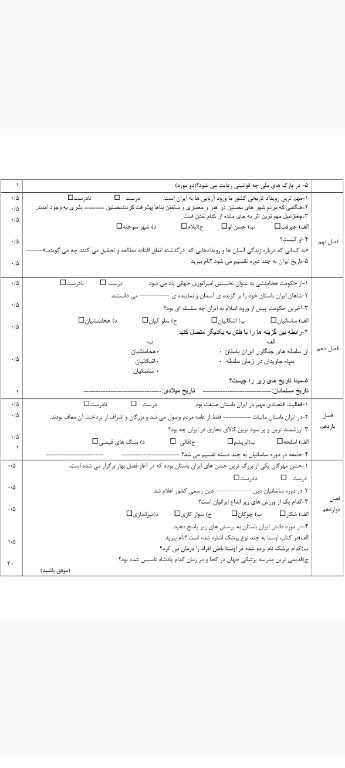 ۵- در پارک های ملی چه قوانینی رعایت می شود؟(دو مورد) ۱
فصل نهم
۱-مهم ترین رویداد تاریخی کشور ما ورود آریایی ها به ایران است. درست □ نادرست□ ۰/۵
۲-هنگامی که مردم شهر های نخستین در هنر و معماری و ساختن بناها پیشرفت کردند،نخستین --------- بشری به وجود آمدند. ۰/۵
۳-چغازنبیل مهم ترین اثر به جای مانده از کدام تمدن است. ۰/۵
الف) جیرفت□ ب) حسن لو□ ج)ایلام□ د) شهر سوخته□
۴-او کیست؟ ۰/۵
«به کسانی که درباره زندگی انسان ها و رویدادهایی که درگذشته اتفاق افتاده مطالعه و تحقیق می کنند چه می گویند.»--------
۵-تاریخ ایران به چند دوره تقسیم می شود ؟نام ببرید ۰/۵
فصل دهم
۱-از حکومت هخامنشی به عنوان نخستین امپراتوری جهانی یاد می شود درست □ نادرست□ ۰/۵
۲-شاهان ایران باستان خود را بر گزیده ی آسمان و نماینده ی -------------- می دانستند. ۰/۵
۳-آخرین حکومت پیش از ورود اسلام به ایران چه سلسله ای بود؟ ۰/۵
الف) ساسانیان□ ب) اشکانیان□ ج) سلو کیان□ د) هخامنشیان□
۴-رابطه بین گزینه ها را با فلش به یکدیگر متصل کنید.
الف ب
از سلسله های جنگاور ایران باستان • •هخامنشیان
سپاه جاویدان در زمان سلسله • •اشکانیان ۰/۵
• ساسانیان
۵-مبدا تاریخ های زیر را چیست؟
تاریخ مسلمانان:--------------------------- تاریخ میلادی:--------------------------- ۱
فصل یازدهم
۱-فعالیت اقتصادی مهم در ایران باستان صنعت بود درست □ نادرست□ ۰/۵
۲-در ایران باستان مالیات ----------- فقط از عامه مردم وصول می شد و بزرگان و اشراف از پرداخت آن معاف بودند. ۰/۵
۳-ارزشمند ترین و پر سود ترین کالای تجاری در ایران چه بود؟
الف) اسلحه□ ب)ابریشم□ ج)قالی □ د) سنگ های قیمتی□ ۰/۵
۴-جامعه در دوره ساسانیان به چند دسته تقسیم می شد؟ -------------------- -------------------- ۱
فصل دوازدهم
۱-جشن مهرگان یکی از بزرگ ترین جشن های ایران باستان بوده که در آغاز فصل بهار برگزار می شده است. ۰/۵
درست □ نادرست□
۲-در دوره ساسانیان دین -------------- دین رسمی کشور اعلام شد. ۰/۵
۳-کدام یک از ورزش های زیر ابداع ایرانیان است؟
الف) شکار□ ب) چوگان□ ج) سوار کاری□ د)تیراندازی□ ۰/۵
۴-در مورد دانش ایران باستان به پرسش های زیر پاسخ دهید.
الف)در کتاب اوستا به چند نوع پزشک اشاره شده است ؟نام ببرید ۱/۵
ب)کدام پزشک نام برده شده در اوستا باطن افراد را درمان می کرد؟
ج)قدیمی ترین مدرسه پزشکی جهان در کجا و در زمان کدام پادشاه تاسیس شده بود؟ ۲۰
(موفق باشید)